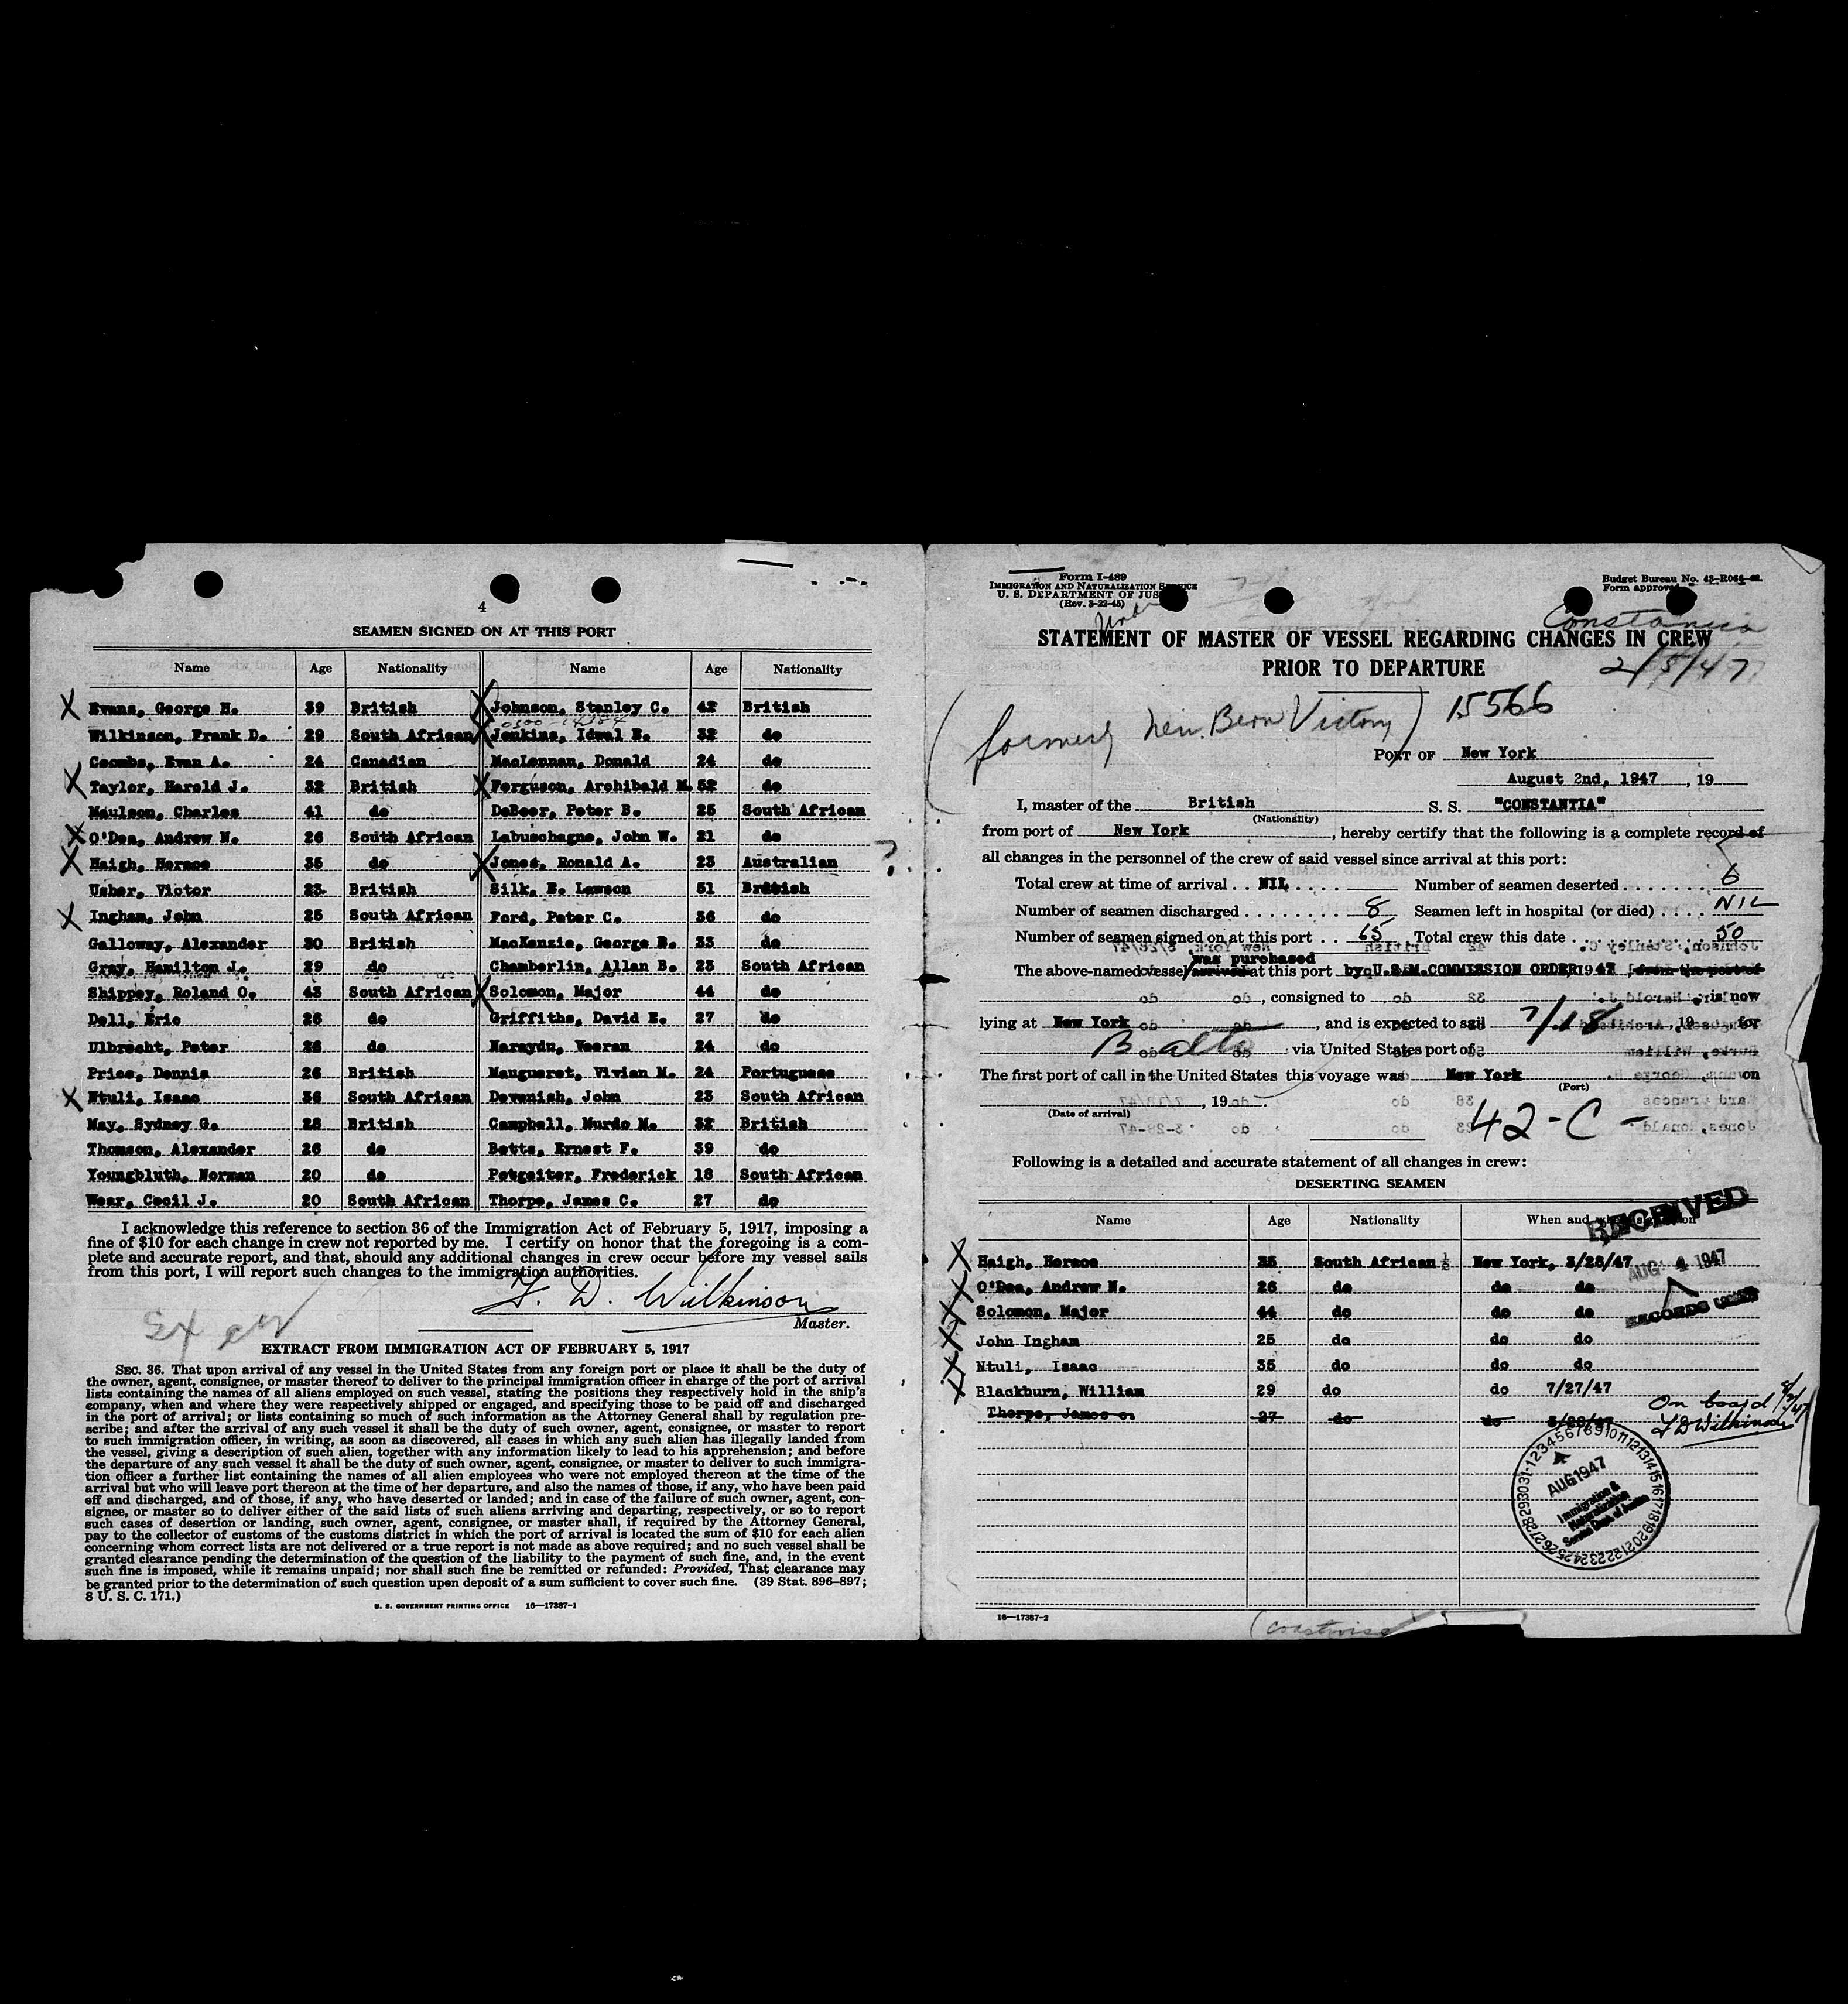 4
SEAMEN SIGNED ON AT THIS PORT
Name Age Nationality Name Age Nationality
X Evans, George H. 39 British X Johnson, Stanley C. 42 British
Wilkinson, Frank D. 29 South African X Jenkins, Idwal R. 32 do
Coombs, Evan A. 24 Canadian MacLennan, Donald 24 do
X Taylor, Harold J. 32 British X Ferguson, Archibald M. 52 do
Maulson, Charles 41 do DeBeer, Peter B. 25 South African
X O'Dea, Andrew N. 26 South African Labuschagne, John W. 21 do
X Haigh, Horace 35 do X Jones, Ronald A. 23 Australian ?
Usher, Victor 23 British Silk, E. Lawson 51 British
X Ingham, John 25 South African Ford, Peter C. 36 do
Galloway, Alexander 30 British MacKenzie, George R. 33 do
Gray, Hamilton J. 29 do Chamberlin, Allan B. 23 South African
Shippey, Roland O. 43 South African X Solomon, Major 44 do
Dell, Eric 26 do Griffiths, David E. 27 do
Ulbrecht, Peter 26 do Naraydu, Veeran 24 do
Price, Dennis 26 British Mauguaret, Vivian M. 24 Portuguese
X Ntuli, Isaac 36 South African Devenish, John 23 South African
May, Sydney G. 28 British Campbell, Murdo M. 32 British
Thomson, Alexander 26 do Betts, Ernest F. 39 do
Youngbluth, Norman 20 do Potgeiter, Frederick 18 South African
Wear, Cecil J. 20 South African Thorpe, James C. 27 do
I acknowledge this reference to section 36 of the Immigration Act of February 5, 1917, imposing a
fine of $10 for each change in crew not reported by me. I certify on honor that the foregoing is a com-
plete and accurate report, and that, should any additional changes in crew occur before my vessel sails
from this port, I will report such changes to the immigration authorities.
F. D. Wilkinson
Master.
EXTRACT FROM IMMIGRATION ACT OF FEBRUARY 5, 1917
SEC. 36. That upon arrival of any vessel in the United States from any foreign port or place it shall be the duty of
the owner, agent, consignee, or master thereof to deliver to the principal immigration officer in charge of the port of arrival
lists containing the names of all aliens employed on such vessel, stating the positions they respectively hold in the ship's
company, when and where they were respectively shipped or engaged, and specifying those to be paid off and discharged
in the port of arrival; or lists containing so much of such information as the Attorney General shall by regulation pre-
scribe; and after the arrival of any such vessel it shall be the duty of such owner, agent, consignee, or master to report
to such immigration officer, in writing, as soon as discovered, all cases in which any such alien has illegally landed from
the vessel, giving a description of such alien, together with any information likely to lead to his apprehension; and before
the departure of any such vessel it shall be the duty of such owner, agent, consignee, or master to deliver to such immigra-
tion officer a further list containing the names of all alien employees who were not employed thereon at the time of the
arrival but who will leave port thereon at the time of her departure, and also the names of those, if any, who have been paid
off and discharged, and of those, if any, who have deserted or landed; and in case of the failure of such owner, agent, con-
signee, or master so to deliver either of the said lists of such aliens arriving and departing, respectively, or so to report
such cases of desertion or landing, such owner, agent, consignee, or master shall, if required by the Attorney General,
pay to the collector of customs of the customs district in which the port of arrival is located the sum of $10 for each alien
concerning whom correct lists are not delivered or a true report is not made as above required; and no such vessel shall be
granted clearance pending the determination of the question of the liability to the payment of such fine, and, in the event
such fine is imposed, while it remains unpaid; nor shall such fine be remitted or refunded: Provided, That clearance may
be granted prior to the determination of such question upon deposit of a sum sufficient to cover such fine. (39 Stat. 896–897;
8 U. S. C. 171.)
U. S. GOVERNMENT PRINTING OFFICE 16—17387-1
Form I-489
IMMIGRATION AND NATURALIZATION SERVICE
U. S. DEPARTMENT OF JUS
(Rev. 3-22-45)
Budget Bureau No. 43-R066
Form approved
Constancia
STATEMENT OF MASTER OF VESSEL REGARDING CHANGES IN CREW
PRIOR TO DEPARTURE
2/5/47
(formerly New Bern Victory) 15566
PORT OF New York
August 2nd, 1947, 19
I, master of the British S. S. "CONSTANTIA"
(Nationality)
from port of New York, hereby certify that the following is a complete record of
all changes in the personnel of the crew of said vessel since arrival at this port:
Total crew at time of arrival . . NIL . . . . Number of seamen deserted . . . . . . . . 6
Number of seamen discharged . . . . . . . . 8 Seamen left in hospital (or died) . . . . NIL
Number of seamen signed on at this port . . 65 Total crew this date . . . . . . . . 50
was purchased
The above-named vessel arrived at this port by U.S.M.COMMISSION ORDER, 1947, from the port of
, consigned to , is now
lying at New York, and is expected to sail 7/18, 19 for
Balto via United States port of
The first port of call in the United States this voyage was New York on
(Port)
, 19
(Date of arrival)
42-C-
Following is a detailed and accurate statement of all changes in crew:
DESERTING SEAMEN
Name Age Nationality When and where signed on
X Haigh, Horace 35 South African New York, 3/28/47
X O'Dea, Andrew N. 26 do do do
X Solomon, Major 44 do do do
X John Ingham 25 do do do
X Ntuli, Isaac 35 do do do
X Blackburn, William 29 do do 7/27/47
Thorpe, James c. 27 do do 3/28/47
On board 8/2/47
F D Wilkinson
RECEIVED
AUG 4 1947
RECORDS UNIT
AUG 1947
Immigration &
Naturalization
Service Dept of Justice
16—17387-2
(coastwise